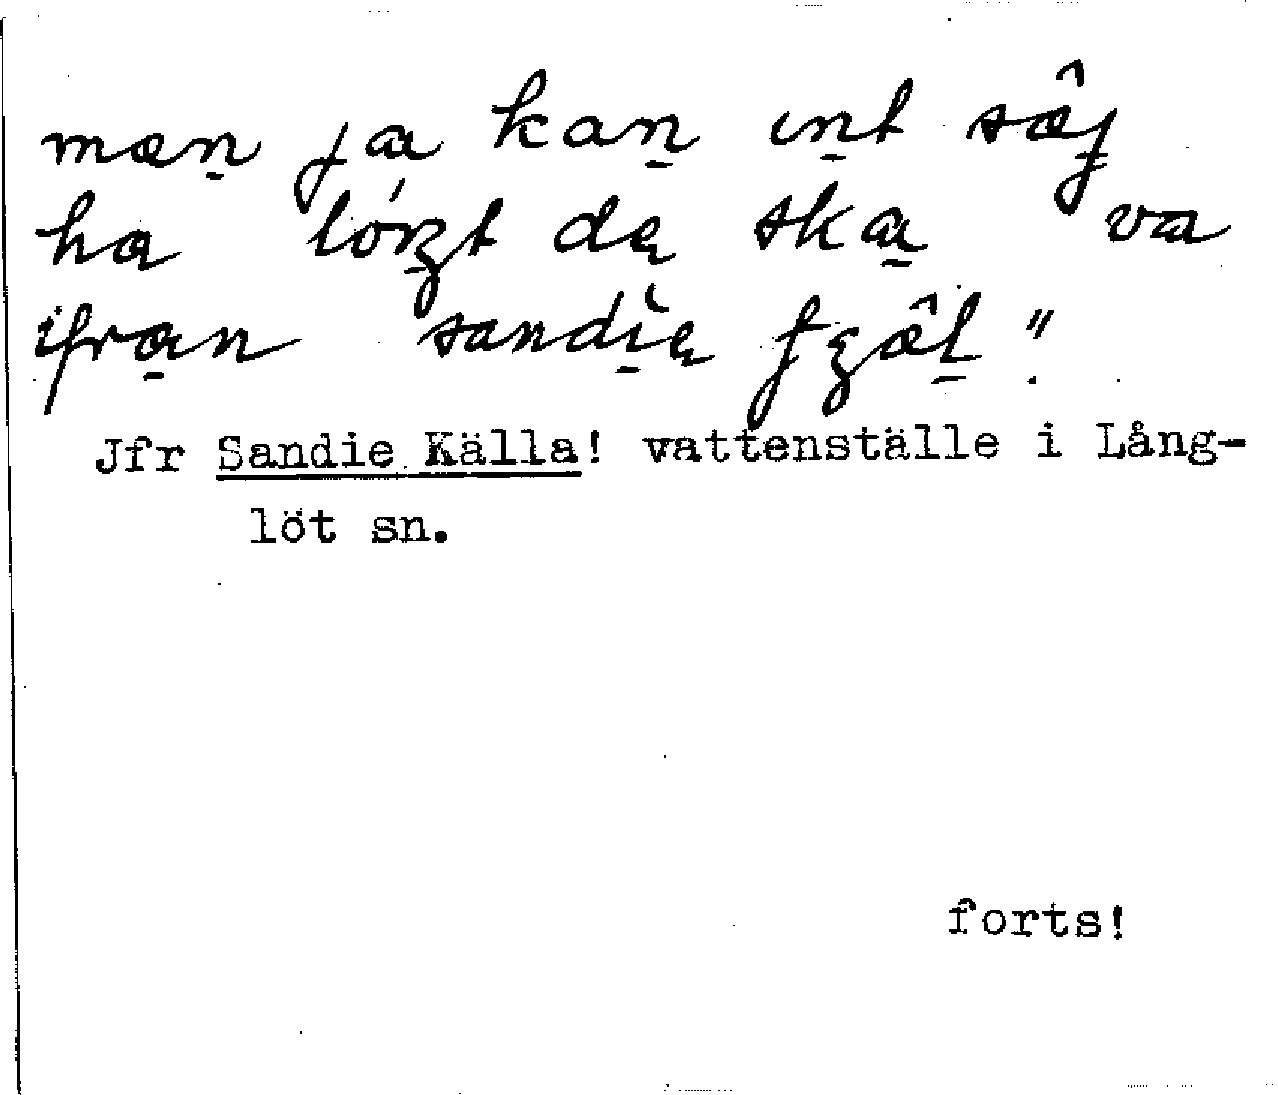 mæn ja kan int sâj
ha lórt dæ ska va
ifran sandìe fgâl".
Jfr Sandie Källa! vattenställe i Lång-
löt sn.
forts!